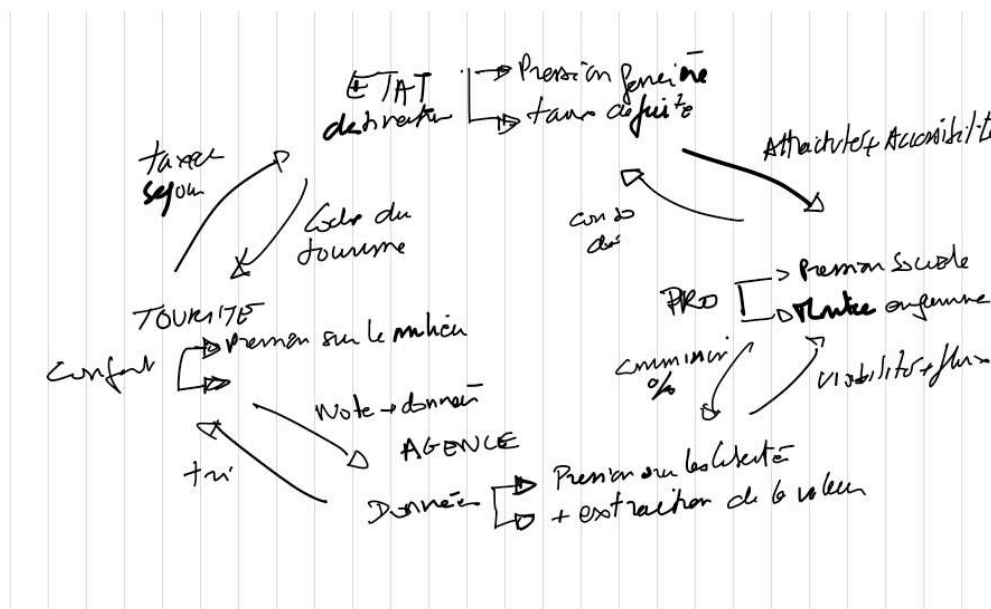 ETAT
destination
Pression foncière
taux de fuite
taxe
séjour
Code du
tourisme
Attractivité + Accessibilité
TOURISTE
Confort
Pression sur le milieu
PRO
Pression sociale
commission
%
Visibilité + flux
Note → données
AGENCE
tri
Données
Pression sur les liberté
+ extraction de la valeur